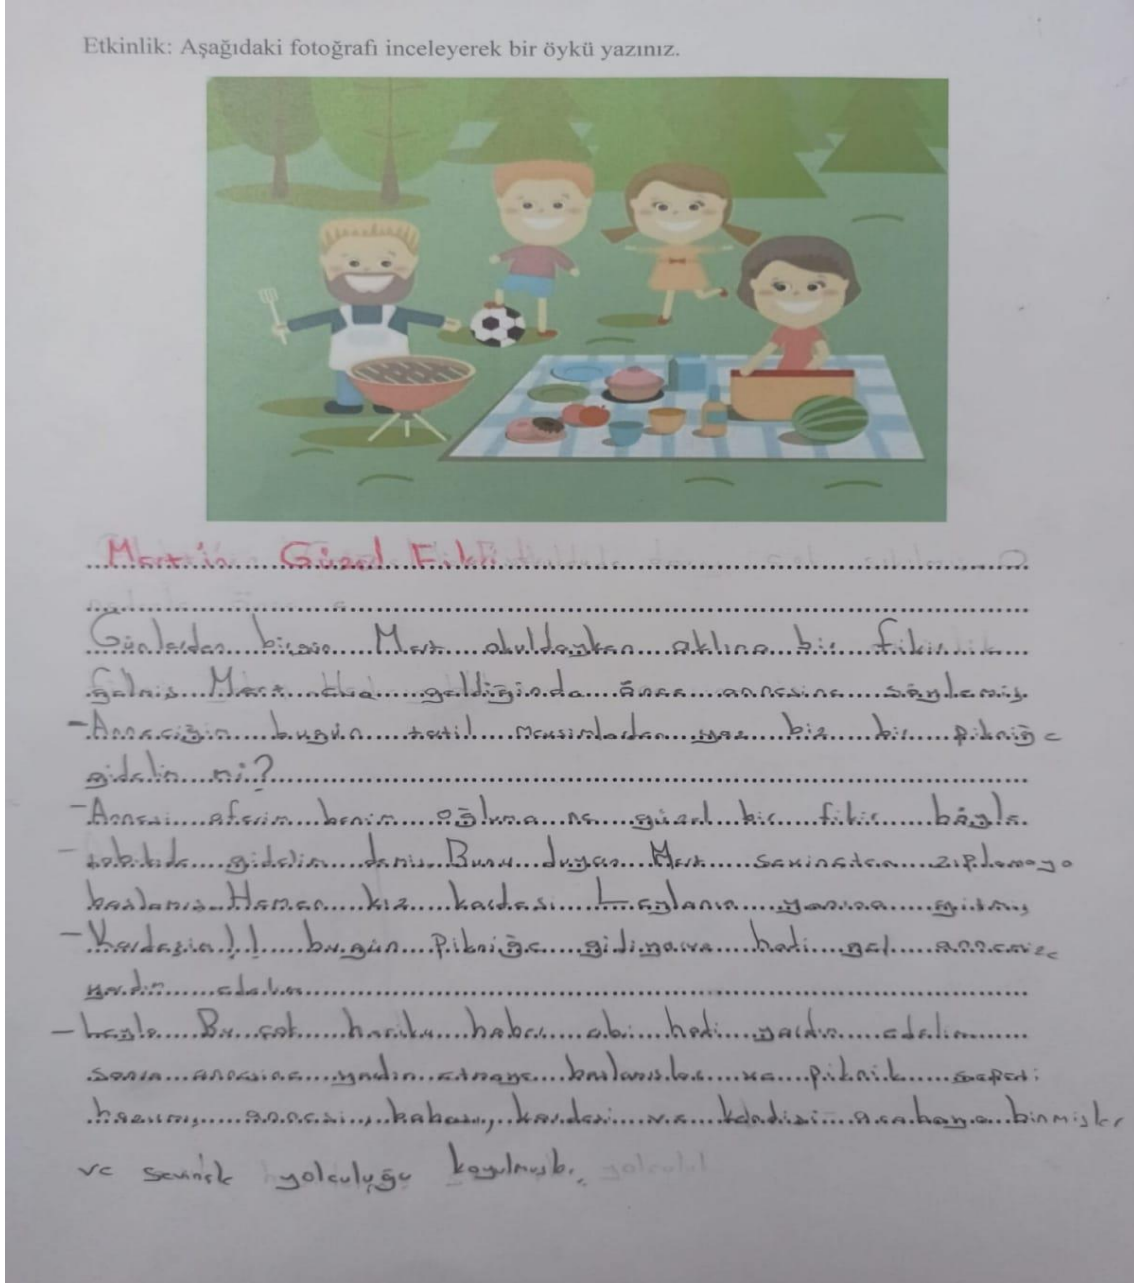 Etkinlik: Aşağıdaki fotoğrafı inceleyerek bir öykü yazınız.
Mert'in Güzel Fikri
Günlerden birgün Mert okuldayken aklına bir fikir
gelmiş Mert eve geldiğinde önce annesine söylemiş.
- Anneciğim bugün tatil mevsimlerden yaz biz bir pikniğe
gidelim mi?
- Annesi aferim benim oğluma ne güzel bir fikir böyle.
- tabikide gidelim demiş. Bunu duyan Mert sevinçten zıplamaya
başlamış. Hemen kız kardeşi Leylanın yanına gitmiş
- Kardeşim!! bugün pikniğe gidiyoruz hadi gel annemize
yardım edelim
- Leyla Bu çok harika haber abi hadi yardım edelim
sonra annesine yadım etmeye başlamışlar ve piknik sepeti
hazırmış annesi, babası, kardeşi ve kendisi arabaya binmişler
ve sevinçle yolculuğu koyulmuşlar